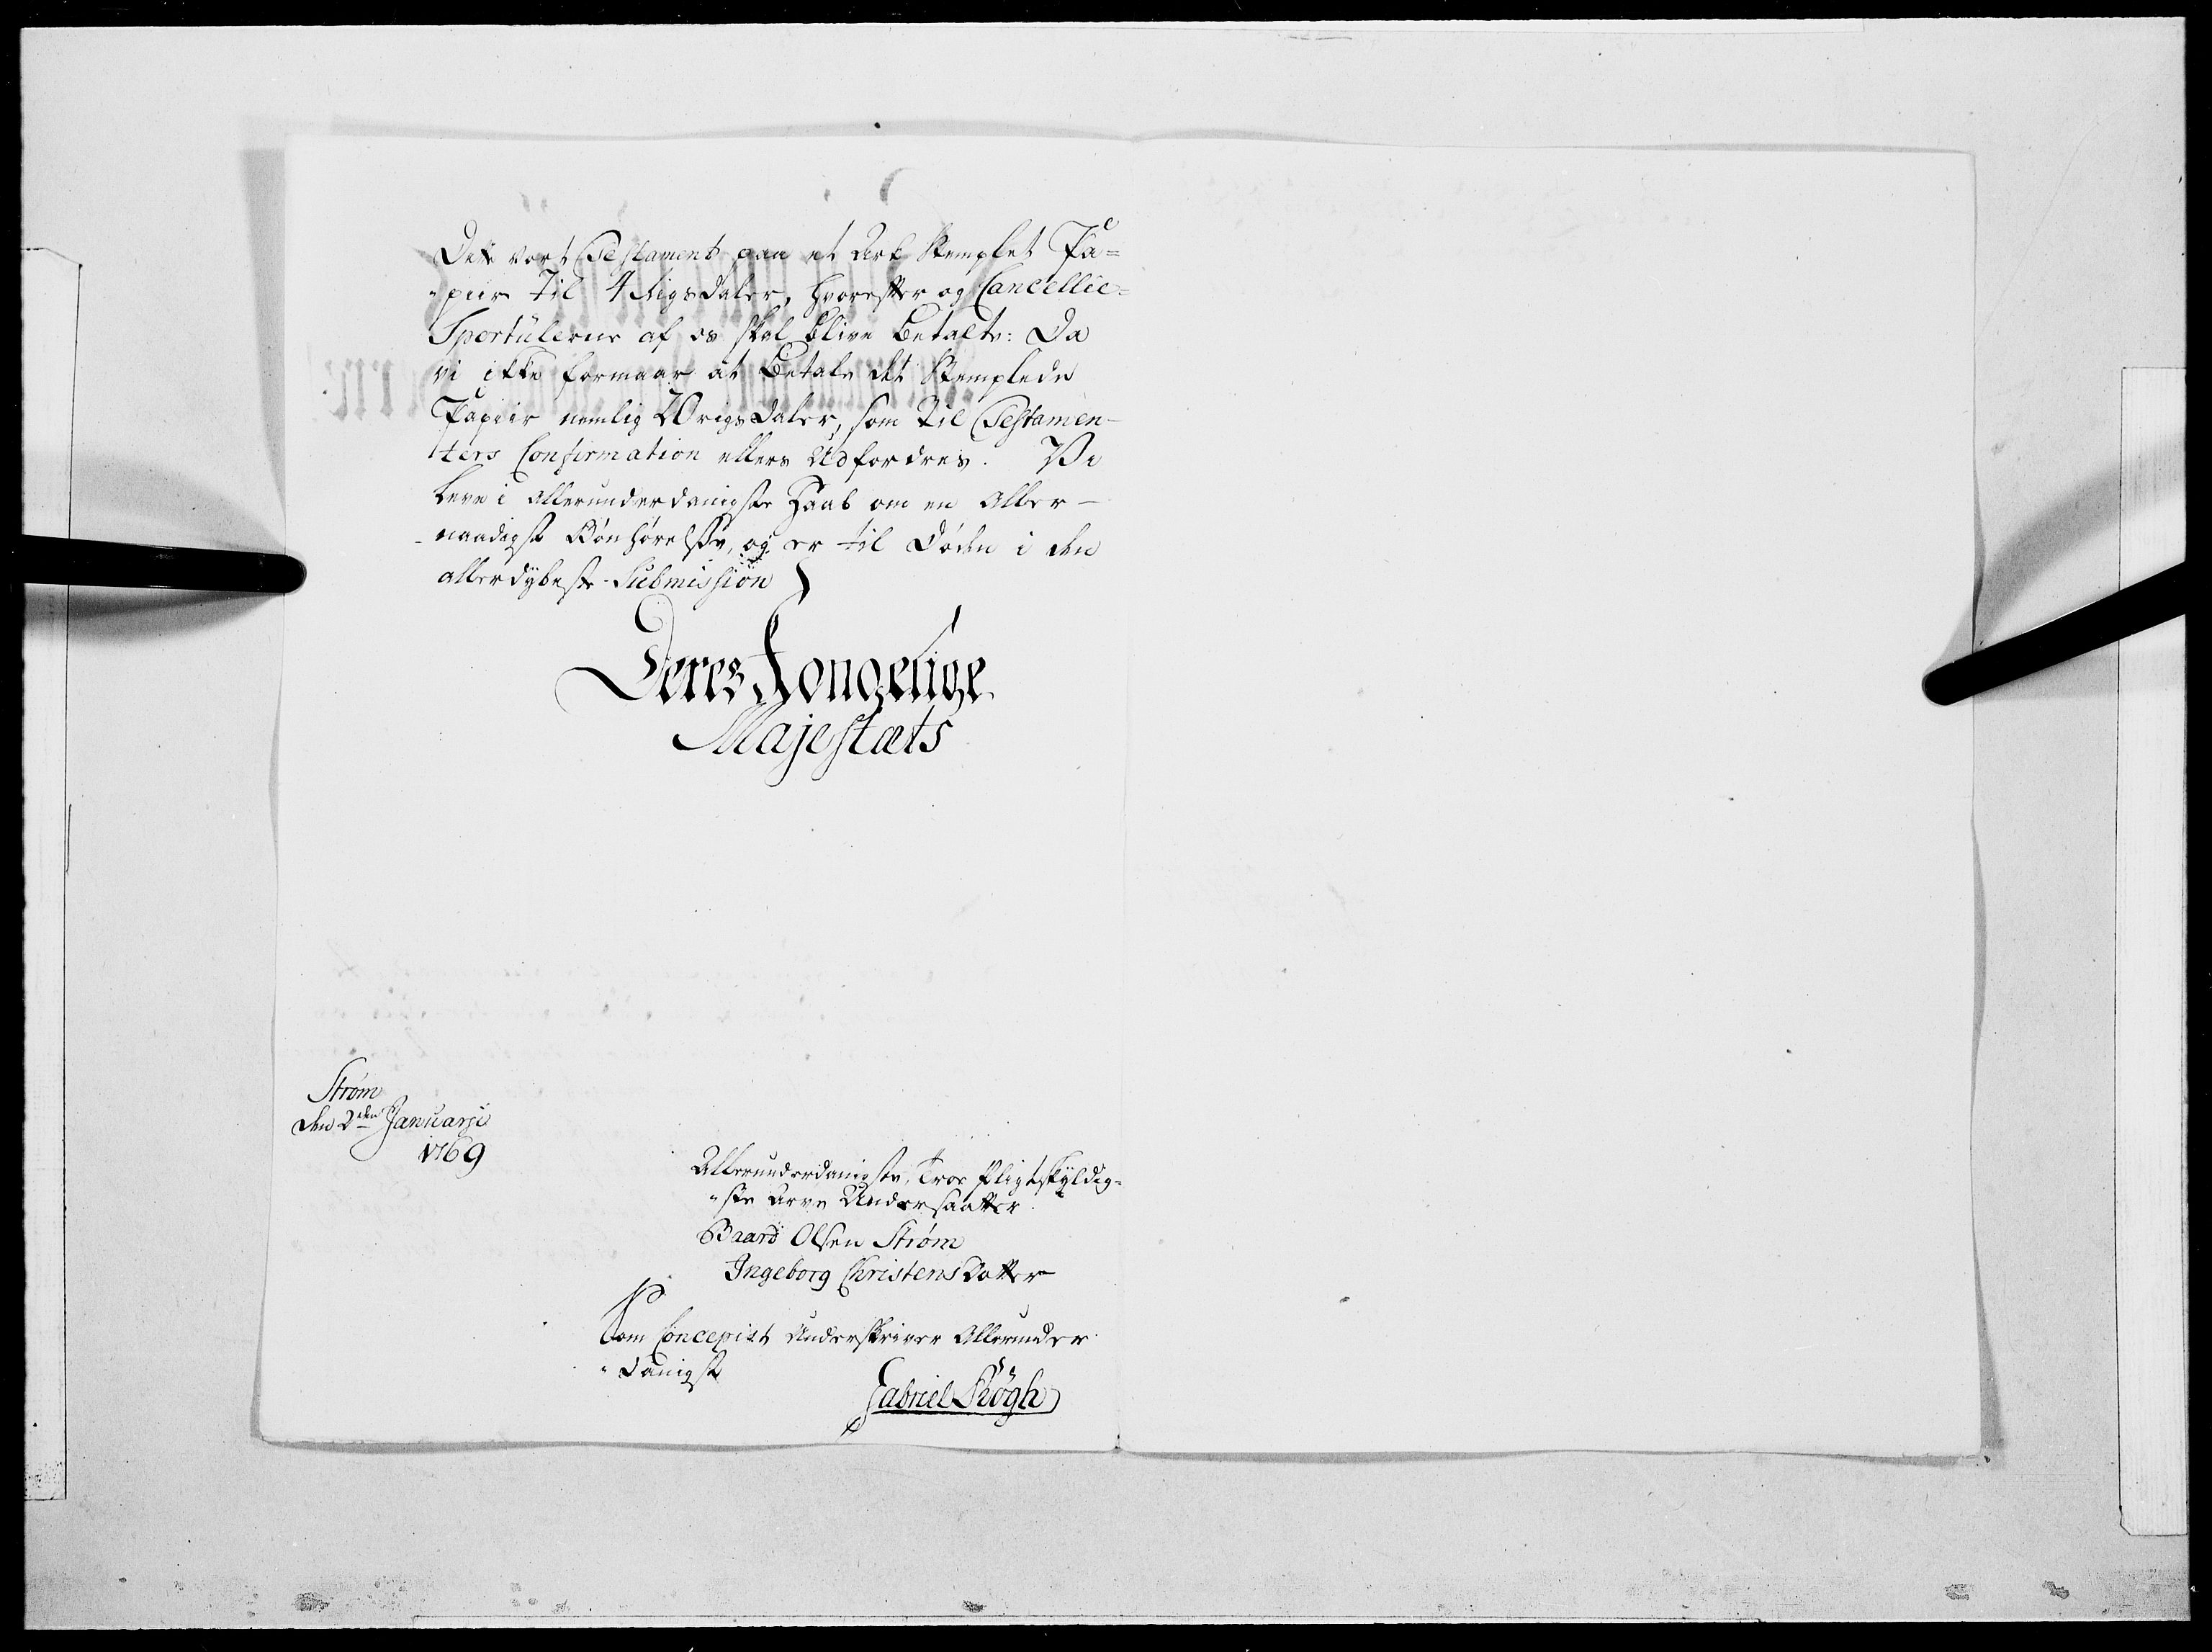 Dette vort Testament paa et Ark Stemplet Pa=
"piir til 4 Rigsdaler, hvorefter og Cancellie=
Sportülerne af os skal blive betalte: Da
vi ikke formaar at betale det Stemplede
Papiir nemlig rigsdaler, som til Testamen-
ters Confirmation ellers Udfordres. Vi
leve i allerunderdanigste Haab om en Aller-
-naadigst Bønhørelse, og er til Døden i den
allerdybeste Submission
Deres Kongelige
Majestæts
Strøm
den 2den Januarji
1769
Allerunderdanigste, Troe Pligtskyldig=
"ste Arve Undersaatter
Baard Olsen Strøm
Ingeborg Christensdatter
Som Concepist Underskriver Allerunder
"danigst
Gabriel Krøgh